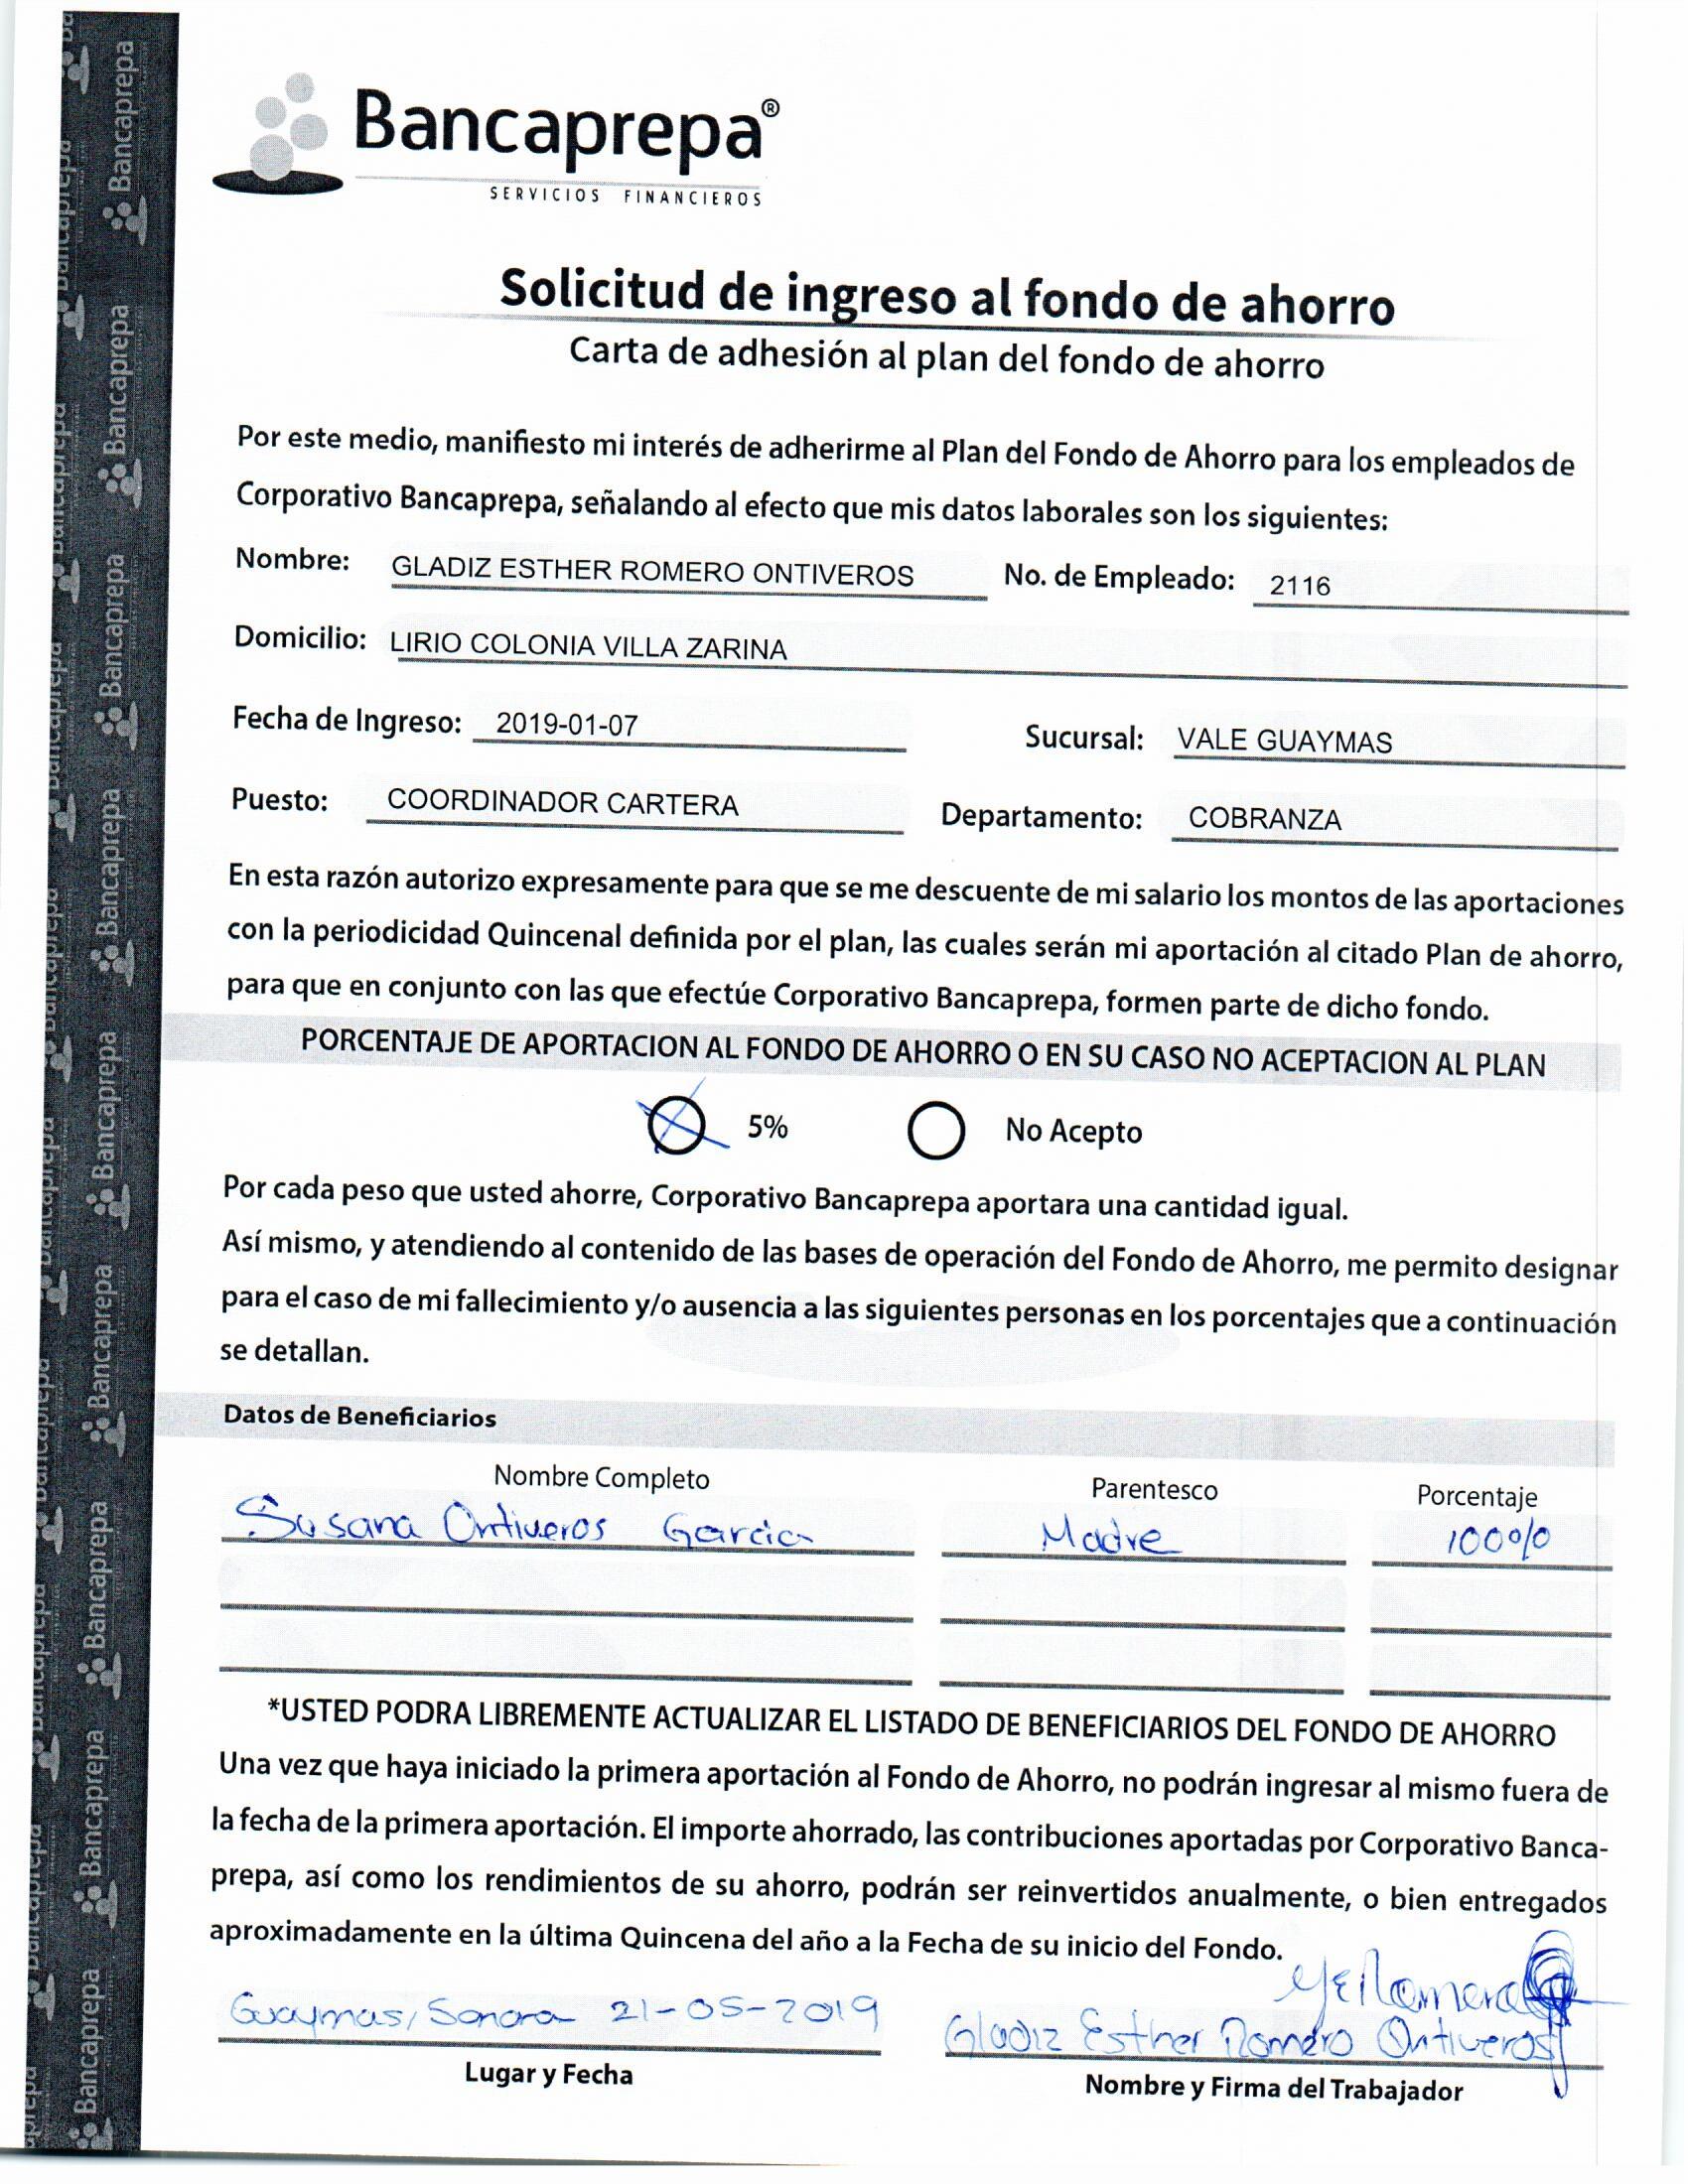 Bancaprepa®
SERVICIOS FINANCIEROS
Solicitud de ingreso al fondo de ahorro
Carta de adhesión al plan del fondo de ahorro
Por este medio, manifiesto mi interés de adherirme al Plan del Fondo de Ahorro para los empleados de
Corporativo Bancaprepa, señalando al efecto que mis datos laborales son los siguientes:
Nombre: GLADIZ ESTHER ROMERO ONTIVEROS No. de Empleado: 2116
Domicilio: LIRIO COLONIA VILLA ZARINA
Fecha de Ingreso: 2019-01-07 Sucursal: VALE GUAYMAS
Puesto: COORDINADOR CARTERA Departamento: COBRANZA
En esta razón autorizo expresamente para que se me descuente de mi salario los montos de las aportaciones
con la periodicidad Quincenal definida por el plan, las cuales serán mi aportación al citado Plan de ahorro,
para que en conjunto con las que efectúe Corporativo Bancaprepa, formen parte de dicho fondo.
PORCENTAJE DE APORTACION AL FONDO DE AHORRO O EN SU CASO NO ACEPTACION AL PLAN
5% No Acepto
Por cada peso que usted ahorre, Corporativo Bancaprepa aportara una cantidad igual.
Así mismo, y atendiendo al contenido de las bases de operación del Fondo de Ahorro, me permito designar
para el caso de mi fallecimiento y/o ausencia a las siguientes personas en los porcentajes que a continuación
se detallan.
Datos de Beneficiarios
Nombre Completo Parentesco Porcentaje
Susana Ontiveros Garcia Madre 100%
*USTED PODRA LIBREMENTE ACTUALIZAR EL LISTADO DE BENEFICIARIOS DEL FONDO DE AHORRO
Una vez que haya iniciado la primera aportación al Fondo de Ahorro, no podrán ingresar al mismo fuera de
la fecha de la primera aportación. El importe ahorrado, las contribuciones aportadas por Corporativo Banca-
prepa, así como los rendimientos de su ahorro, podrán ser reinvertidos anualmente, o bien entregados
aproximadamente en la última Quincena del año a la Fecha de su inicio del Fondo.
Guaymas, Sonora 21-05-2019 Gladiz Esther Romero Ontiveros
Lugar y Fecha Nombre y Firma del Trabajador